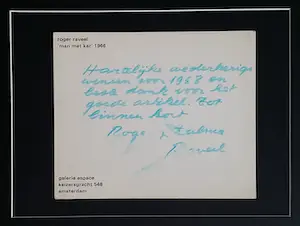 roger raveel
'man met kar' 1966
Hartelijke wederkerige
wensen voor 1968 en
veel dank voor het
goede artikel. Tot
binnen kort
Roger & Zulma
Raveel
galerie espace
keizersgracht 548
amsterdam